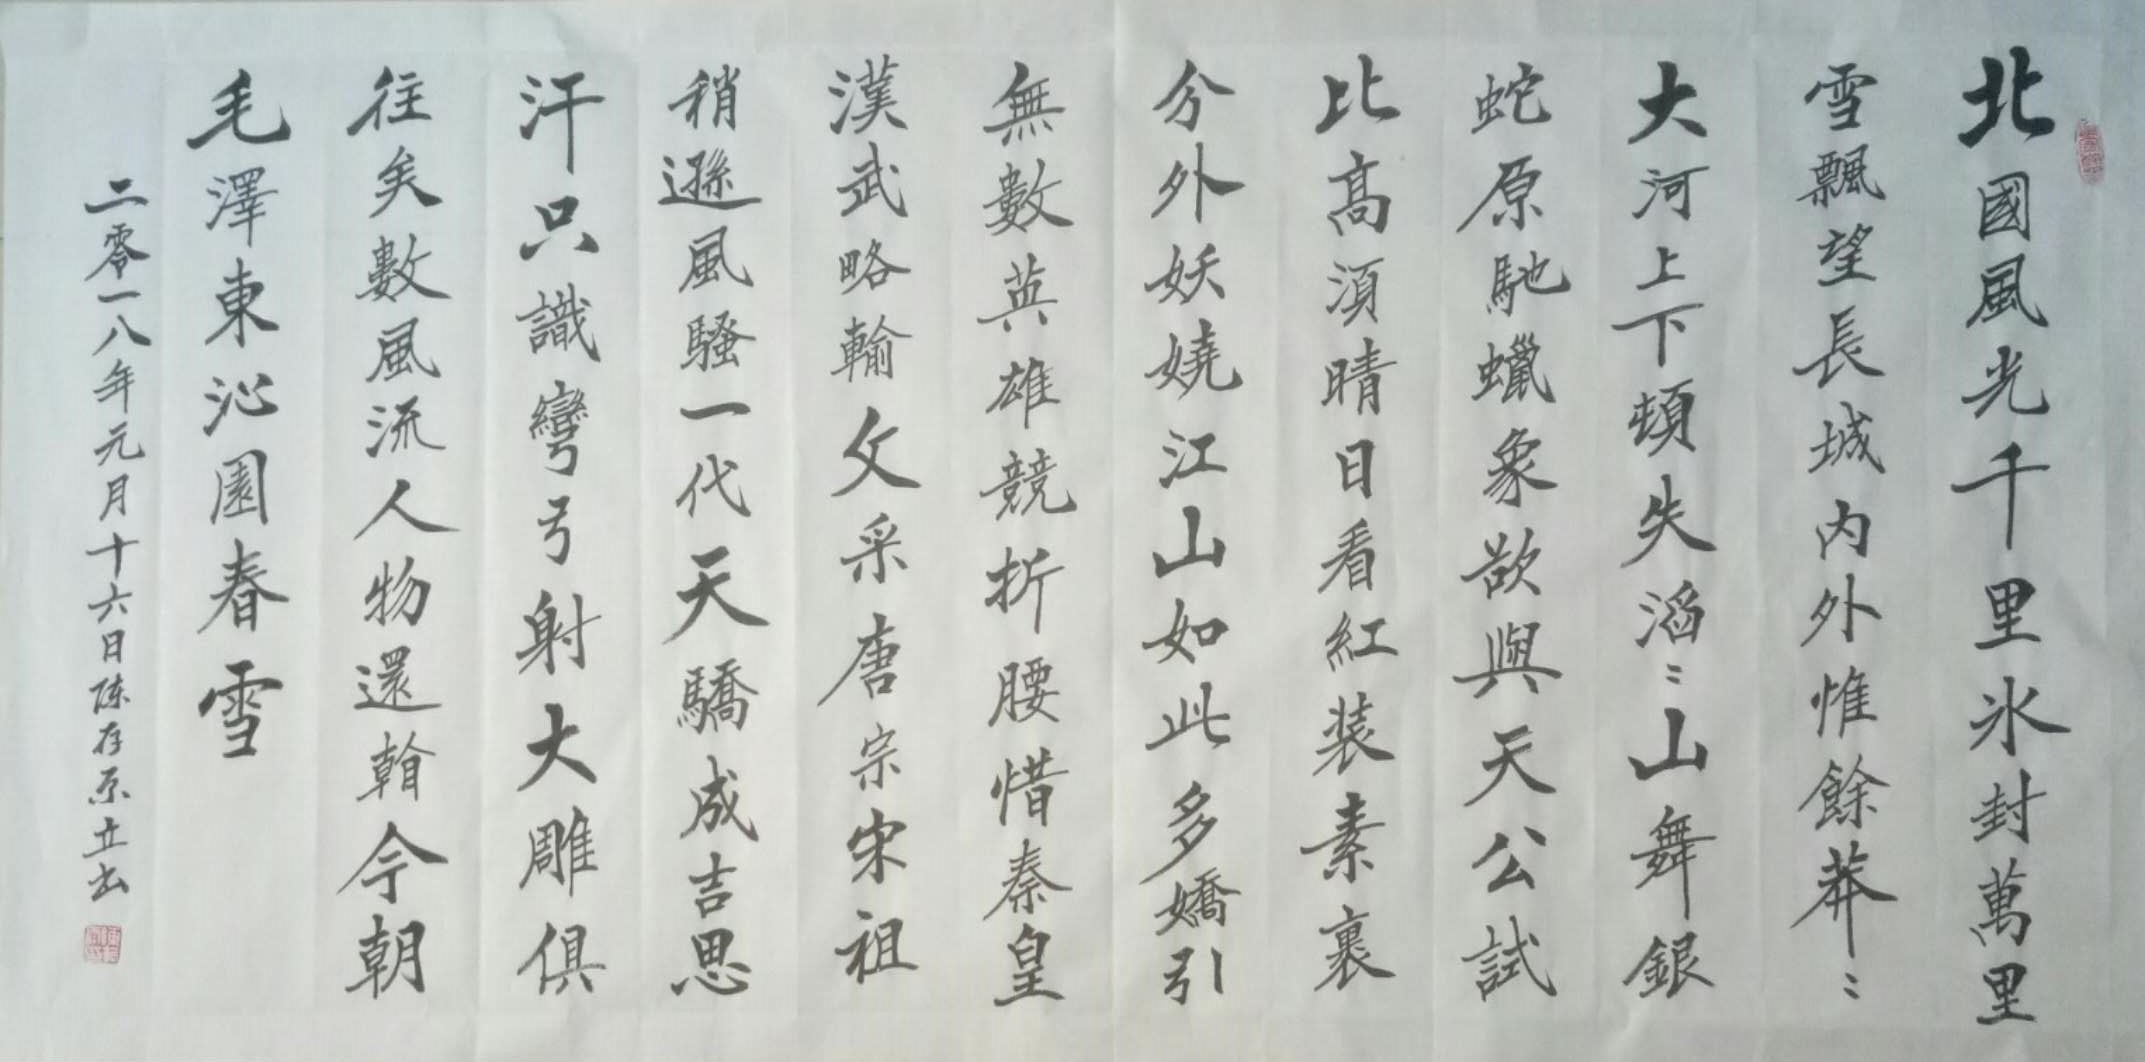 北國風光千里氷封萬里
雪飄望長城内外惟餘莽〻
大河上下頓失滔〻山舞銀
蛇原馳蠟象欲與天公試
比高須晴日看紅装素裹
分外妖嬈江山如此多嬌引
無數英雄競折腰惜秦皇
漢武略輸文采唐宗宋祖
稍遜風騷一代天驕成吉思
汗只識彎弓射大雕俱
往矣數風流人物還看今朝
毛澤東沁園春雪
二零一八年元月十六日陈存原立书